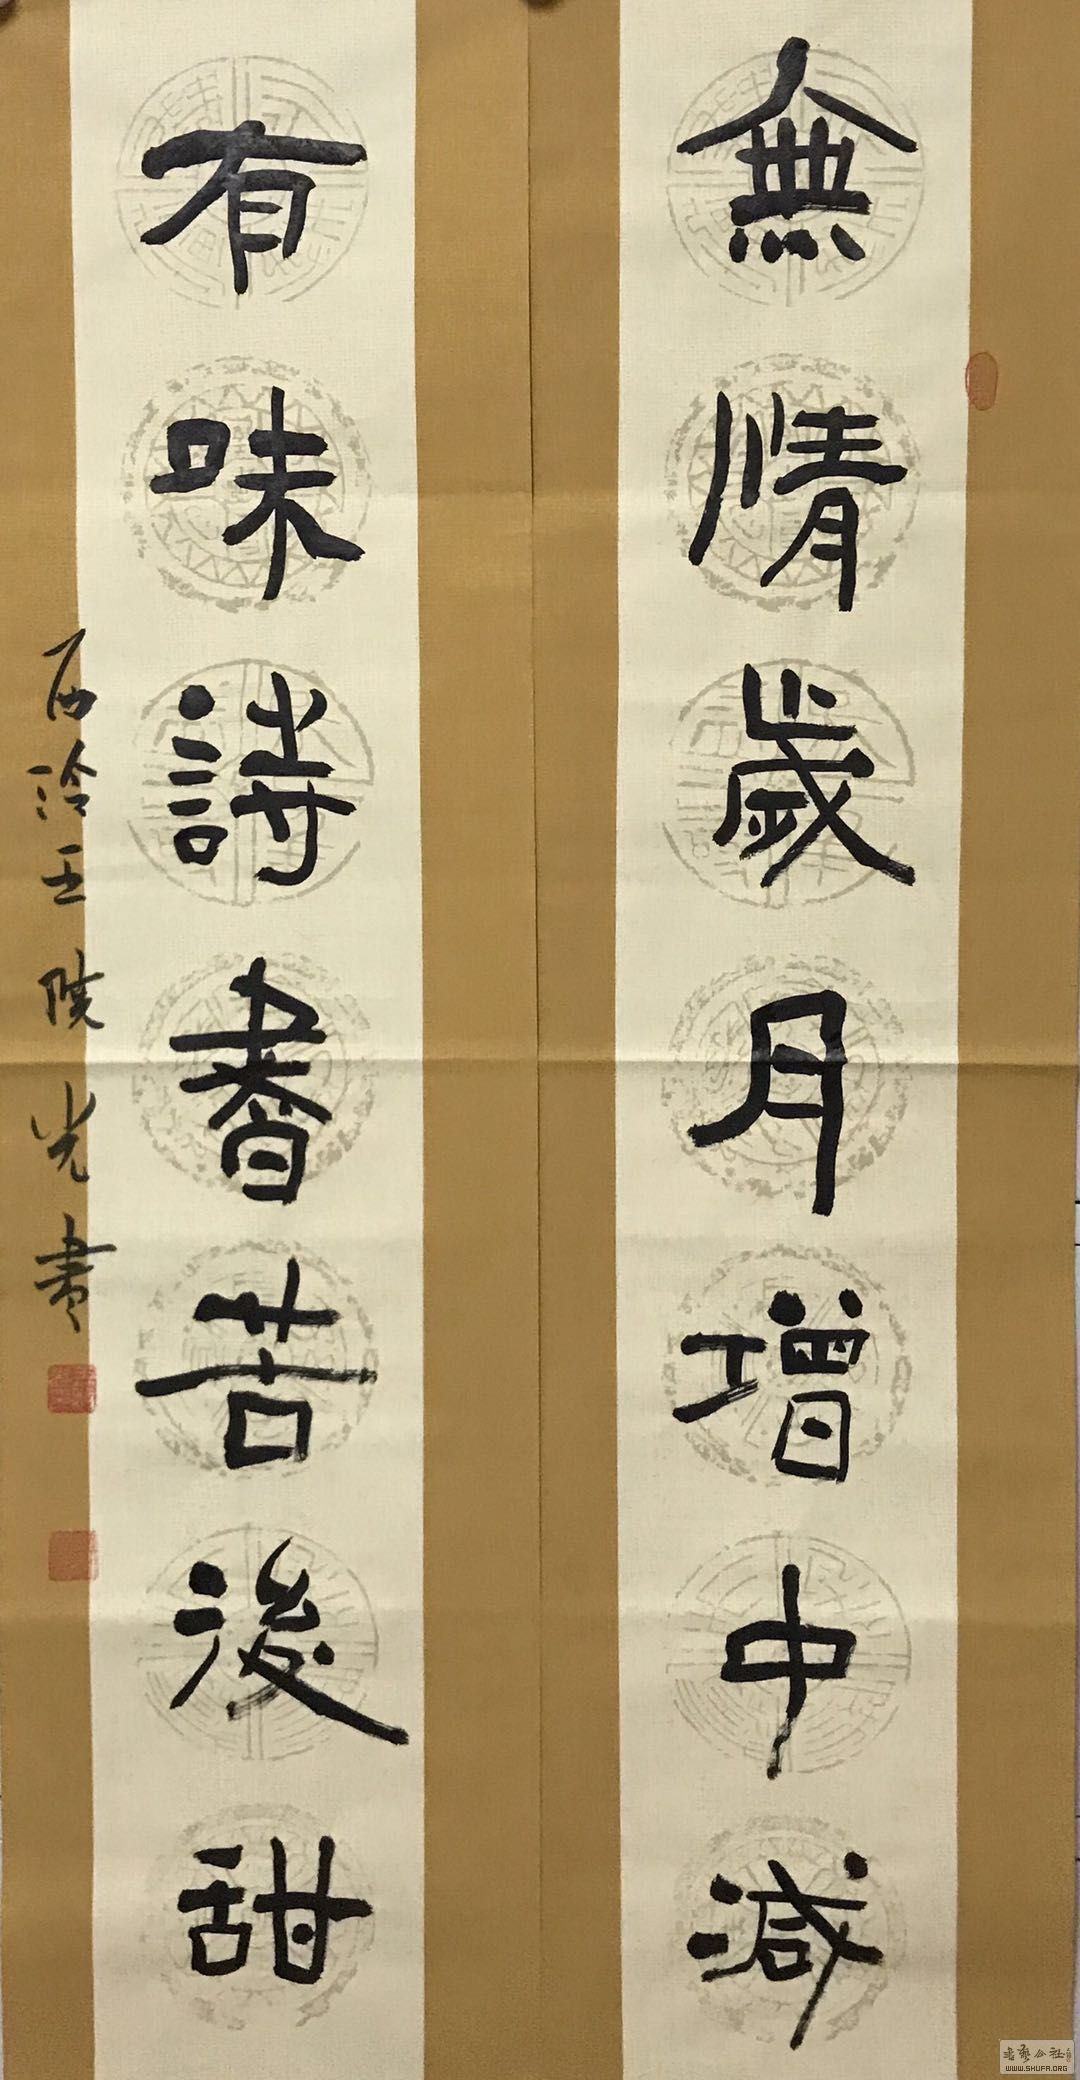 無情歲月增中減
有味詩書苦後甜
西泠王陵光書
書藝公社
WWW.SHUFA.ORG